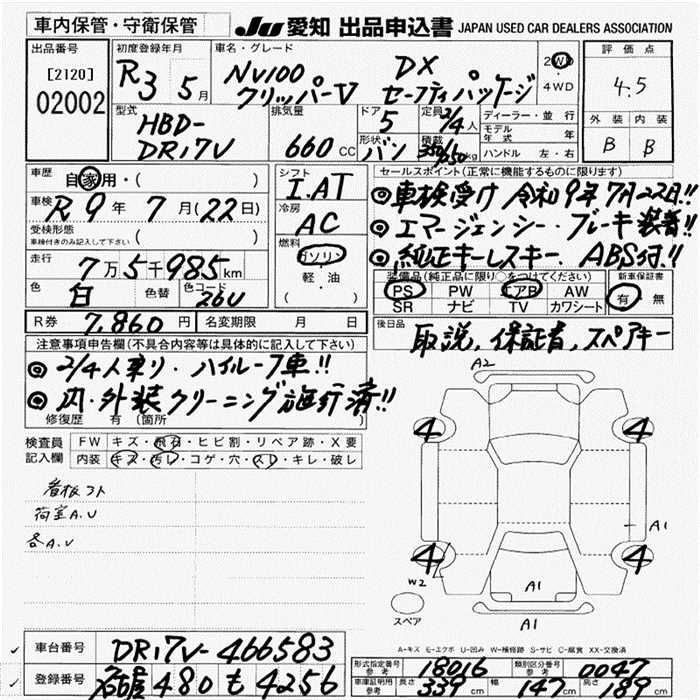 車内保管・守衛保管
JU 愛知 出品申込書 JAPAN USED CAR DEALERS ASSOCIATION
出品番号
[2120]
02002
初度登録年月
R3 5月
車名・グレード
NV100 DX
クリッパーV セーフティパッケージ
2WD
・
4WD
評価点
4.5
外装 内装
B B
型式
HBD-
DR17V
排気量
660 CC
ドア
5
定員
2/4人
形状
バン
積載
350/250kg
ディーラー・並行
モデル年式 年
ハンドル 左・右
車歴
自家用・( )
車検
R 9年 7月(22日)
受検形態
車検付きのみ記入して下さい ( )
走行
7万5千985km
色
白
色替
色コード
26U
シフト
I.AT
冷房
AC
燃料
ガソリン
軽・油
( )
セールスポイント(正常に機能するものに限ります)
◎車検受け 令和9年7月22日!!
◎エマージェンシー・ブレーキ装着!!
◎純正キーレスキー、ABS付!!
装備品(純正品に限り○をつけてください)
PS PW エアB AW
SR ナビ TV カワシート
新車保証書
有・無
R券 7,860円 名変期限 月 日
後日品
取説, 保証書, スペアキー
注意事項申告欄(不具合内容等は具体的に記入して下さい)
◎2/4人乗り・ハイルーフ車!!
◎内・外装クリーニング施行済!!
修復歴 有(箇所 )
検査員
記入欄
FW キズ・飛石・ヒビ割・リペア跡・X要
内装 キズ・汚レ・コゲ・穴・スレ・キレ・破レ
看板フト
荷室A.U
各A.U
A2
4
4
A1
4
4
W2
A1
スペア
A1
A-キズ E-エクボ U-凹み W-補修跡 S-サビ C-腐食 XX-交換済
車台番号 DR17V-466583
登録番号 名古屋 480 も 4256
形式指定番号 参考 18016
類別区分番号 参考 0047
車庫証明用 参考 長さ 339cm 幅 147cm 高さ 189cm